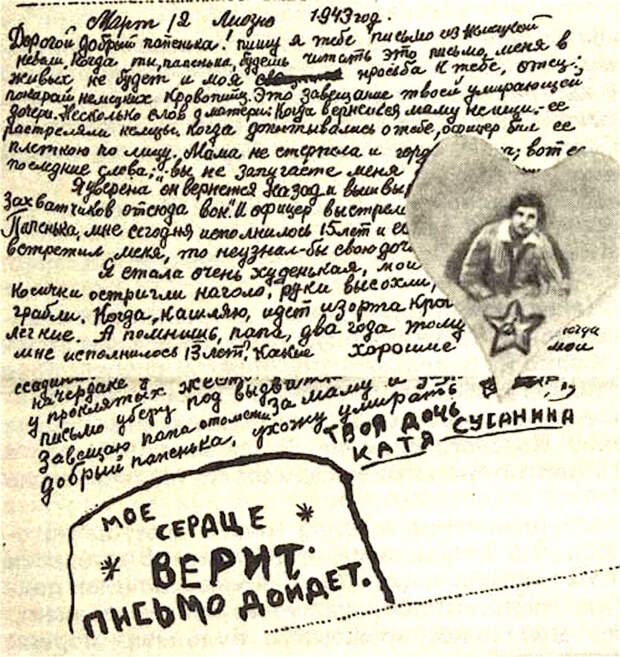 Март, 12 Лиозно 1943 год.
Дорогой добрый папенька! пишу я тебе письмо из немецкой
неволи. Когда ты, папенька, будешь читать это письмо, меня в
живых не будет и моя просьба к тебе, отец:
покарай немецких кровопийц. Это завещание твоей умирающей
дочери. Несколько слов о матери. Когда вернешься маму не ищи. - ее
расстреляли немцы. Когда допытывались о тебе, офицер бил ее
плеткою по лицу. Мама не стерпела и гор ; вот ее
последние слова; "вы не запугаете меня
Я уверена он вернется назад и вышвыр
захватчиков отсюда вон". И офицер выстрел
Папенька, мне сегодня исполнилось 15 лет и ес
встретил меня, то неузнал-бы свою доч
Я стала очень худенькая, мои
косички остригли наголо, руки высохли,
грабли. Когда, кашляю, идет изо рта кров
легкие. А помнишь, папа, два года тому когда
мне исполнилось 13 лет, Какие хорошие мои
на чердаке у
у проклятых, жест
письмо уберу под выдвиж
Завещаю папа отомсти за маму и
добрый папенька, ухожу умирать
ТВОЯ ДОЧЬ
КАТЯ СУСАНИНА
МОЕ
СЕРДЦЕ
* ВЕРИТ. *
ПИСЬМО ДОЙДЕТ.